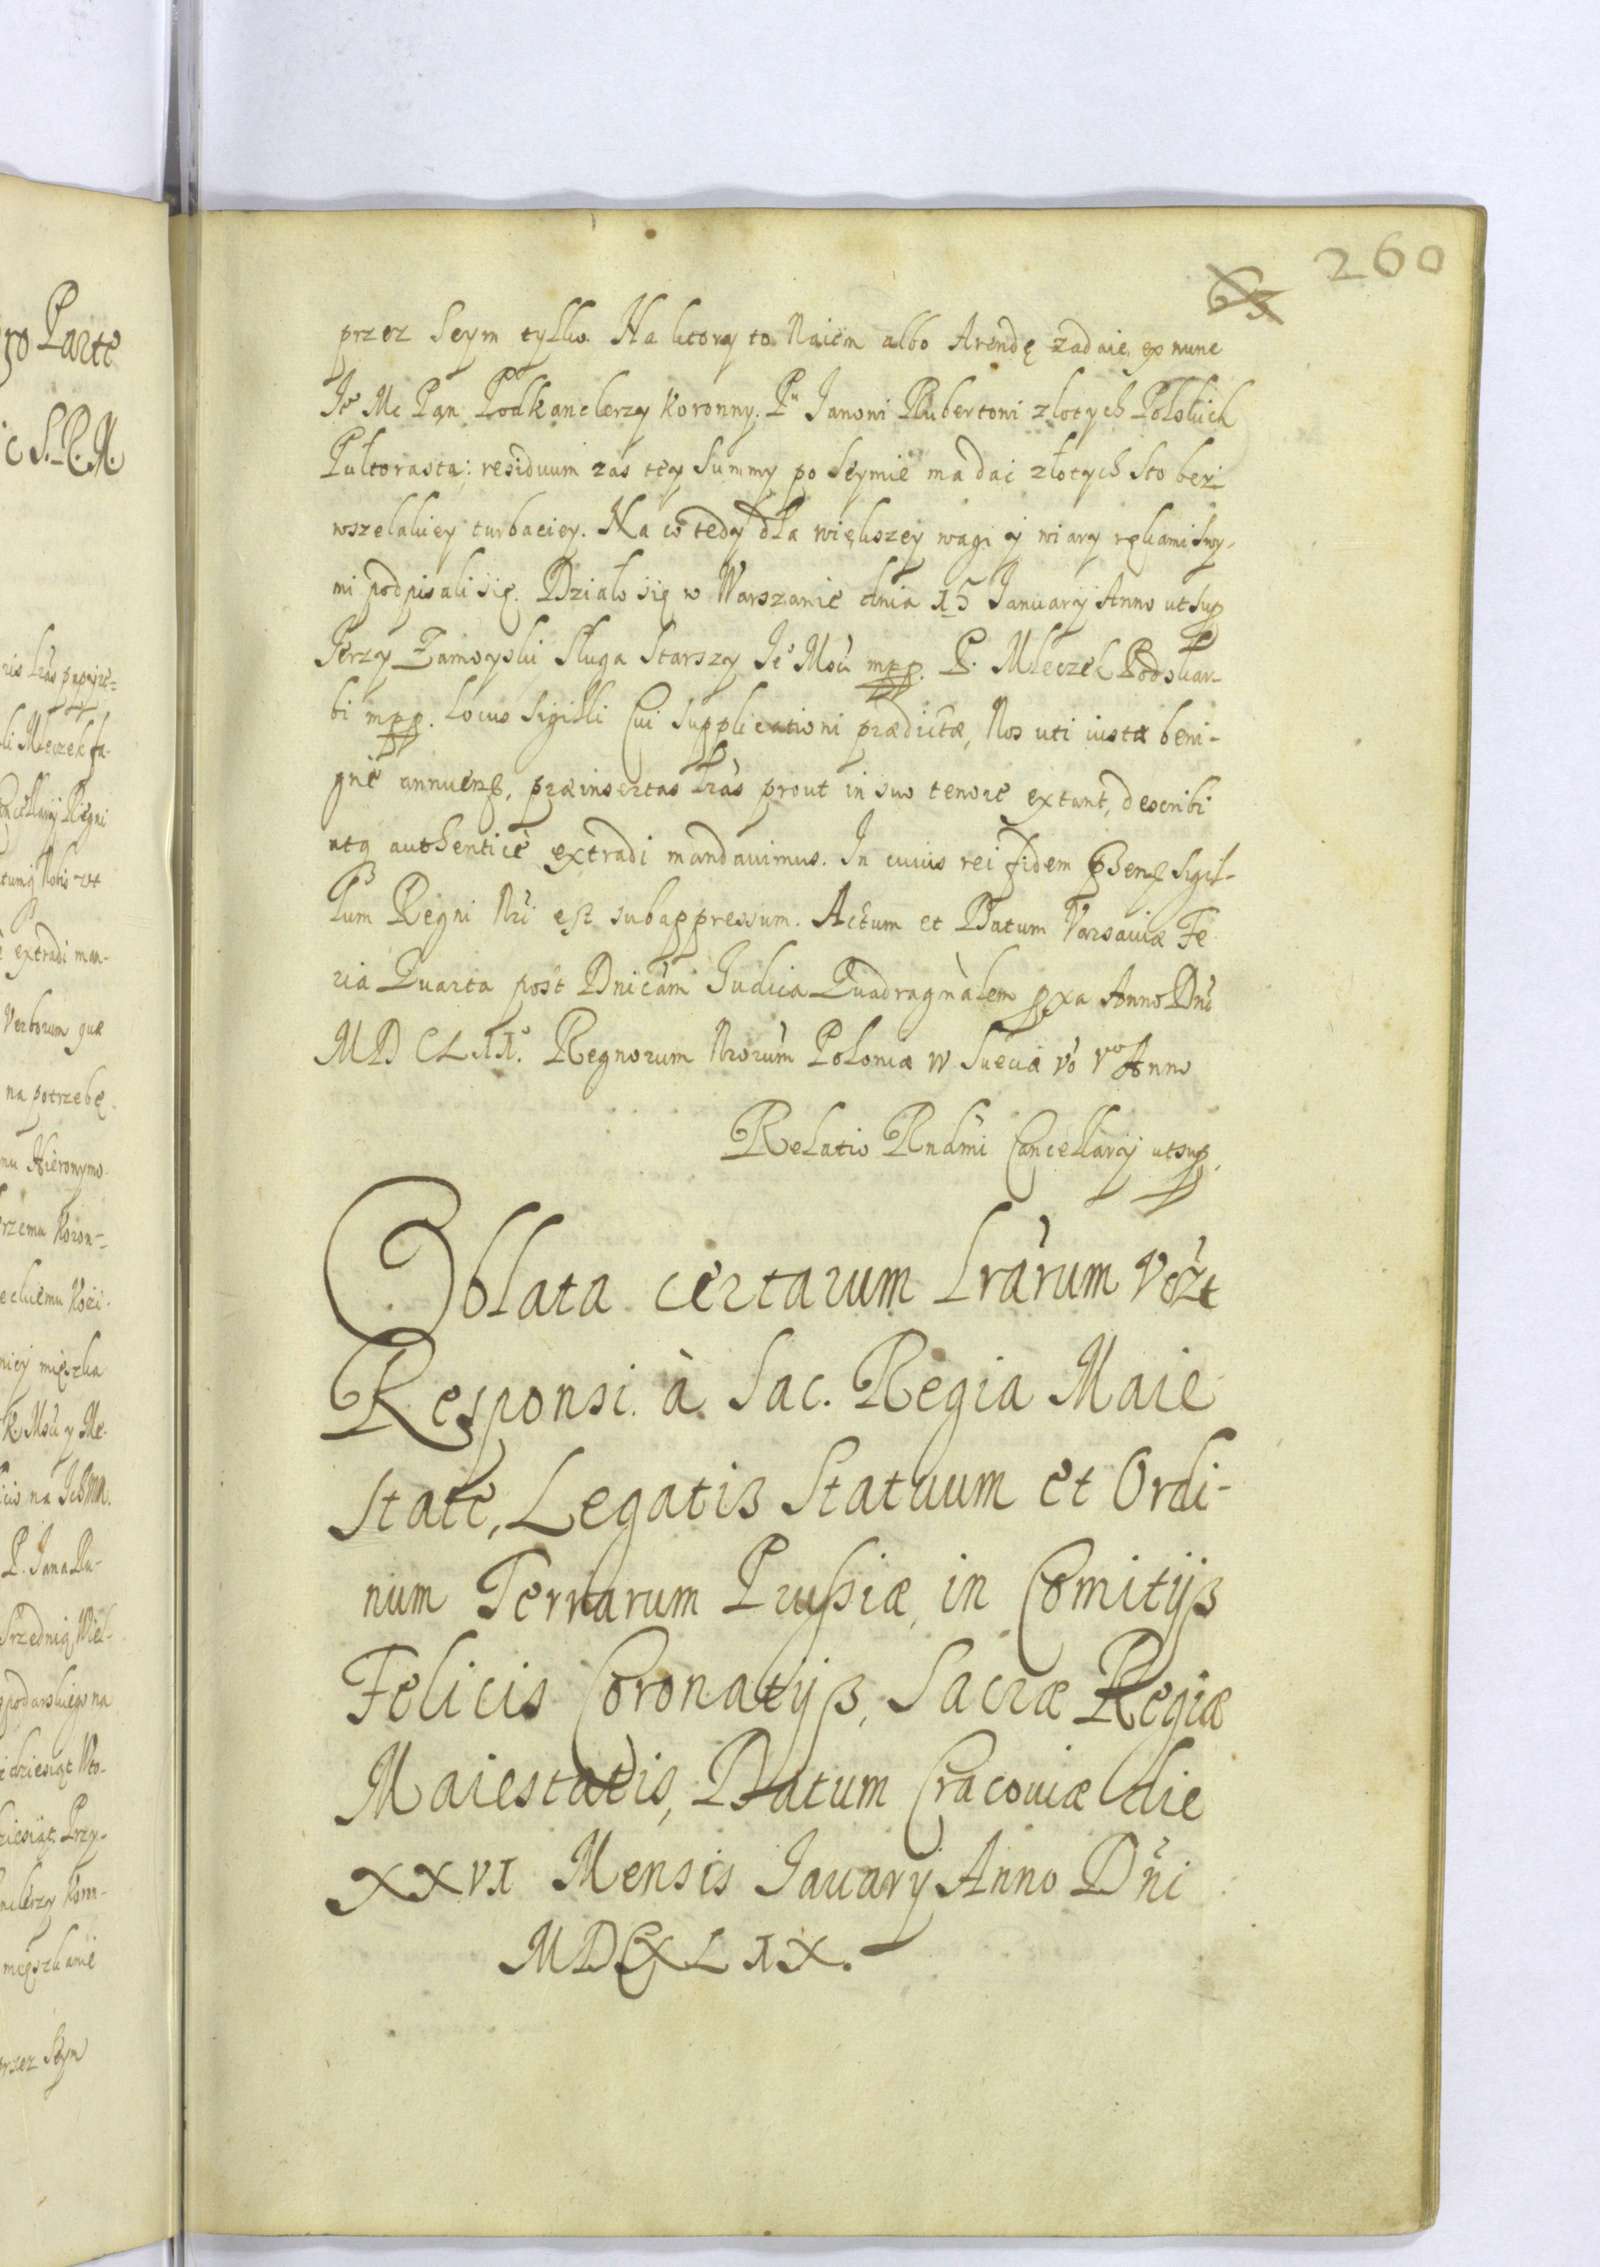 260
63
przez Seym tylko. Na ktory to Naiem albo Arendę zadaie, ex nunc
Je Mc Pan Podkanclerzy Koronny. Pu Janoni Rubertoni złotych Polskich
Pułtorasta: residuum zas tey Summy po Seymie ma dac złotych Sto bez
wszelakiey turbaciey. Na co tedy dla większey wagi y wiary rękami swy-
mi podpisali się. Działo się w Warszawie dnia 15 Ianuarij Anno ut sup
Jerzy Zamoyski Sługa Starszy Je Mści mpp. P. Mleczek Podskar-
bi mpp. Locus Sigilli Cui supplicationi prædictæ, Nos uti iustæ beni-
gnè annuen, præinsertas Lras prout in suo tenore extant, describi
atq authenticè extradi mandavimus. In cuius rei fidem pñsen Sigil-
lum Regni Nri est subappressum. Actum et Datum Varsaviæ Fe
ria Quarta post Dnicam Iudica Quadragnalem pxa Anno Dni
MDCLII. Regnorum Nrorum Poloniæ IV Sueciæ vo Vo Anno
Relatio Rndmi Cancellarij ut sup.
Oblata certarum Lrarum
Responsi à Sac. Regia Maie
state, Legatis Statuum et Ordi-
num Terrarum Prussiæ, in Comitijs
Felicis Coronatijs, Sacræ Regiæ
Maiestatis, Datum Cracoviæ die
XXVI Mensis Iauary Anno Dñi
MDCXLIX.
ro Parte
ic S. R. M.
li Mleczek fa-
extradi man-
Verborum quæ
na potrzebę
nu Hieronymo
rzemu Koron-
niey mieszka
k. Mści y Me-
P. Jana Ru-
na
dziesiąt
ziesiąt Przy-
mieszkanie
przez Seym